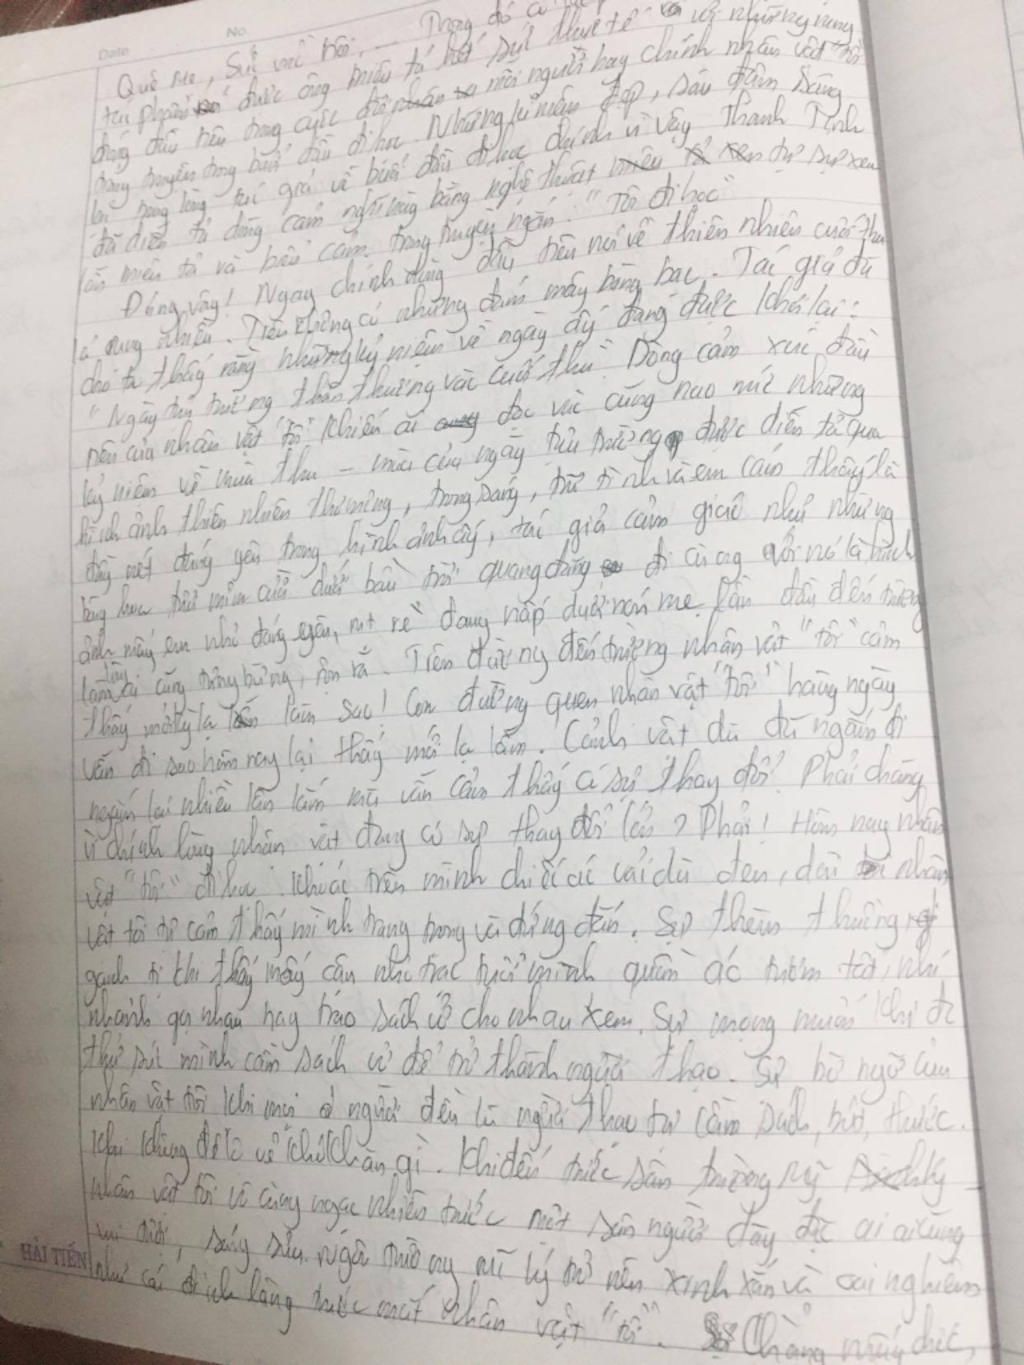 Date No.
Quê mẹ, Sức mồ hôi, ... Trong đó có
tác phẩm được ông miêu tả hết sức thực tế và những rung
động đầu tiên trong cuộc đời mỗi người hay chính nhân vật "tôi"
trong truyện trong buổi đầu đi học. Những kỉ niệm đẹp, sâu đậm
lại trong lòng tác giả về buổi đầu đi học chính vì vậy Thanh Tịnh
đã diễn tả dòng cảm nghĩ này bằng nghệ thuật tự sự xen
lẫn miêu tả và biểu cảm trong truyện ngắn: "Tôi đi học"
Đúng vậy! Ngay chính dòng đầu tiên nói về thiên nhiên cuối thu
lá rụng nhiều. Trên không có những đám mây bàng bạc. Tác giả đã
cho ta thấy rằng những kỷ niệm về ngày ấy đang được khơi lại:
"Ngày tựu trường thân thương vào cuối thu". Dòng cảm xúc đầu
tiên của nhân vật "tôi" khiến ai đọc vào cũng nao nức những
kỷ niệm về mùa thu – mùa của ngày tựu trường được diễn tả qua
hình ảnh thiên nhiên thơ mộng, trong sáng, trữ tình và em cảm thấy là
từng nét đáng yêu trong hình ảnh ấy, tác giả cảm giác như những
bông hoa tươi mỉm cười dưới bầu trời quang đãng đi cùng với nó là hình
ảnh mấy em nhỏ đáng yêu, rụt rè đang nấp dưới nón mẹ lần đầu đến trường
làm lòng ai cũng tưng bừng, rộn rã. Trên đường đến trường nhân vật "tôi" cảm
thấy mới lạ làm sao! Con đường quen nhân vật "tôi" hằng ngày
vẫn đi sao hôm nay lại thấy mới lạ lắm. Cảnh vật dù đã ngắm đi
ngắm lại nhiều lần lắm mà vẫn cảm thấy có sự thay đổi? Phải chăng
vì chính lòng nhân vật đang có sự thay đổi lớn? Phải! Hôm nay nhân
vật "tôi" đi học. Khoác trên mình chiếc áo vải dù đen, dài nhân
vật tôi đã cảm thấy mình trang trọng và đứng đắn. Sự thèm thuồng
ganh tị khi thấy mấy cậu nhỏ trạc tuổi mình quần áo tươm tất, nhí
nhảnh gọi nhau hay trao sách vở cho nhau xem. Sự mong muốn khi đi
thử sức mình cầm sách vở để trở thành người thạo. Sự bỡ ngỡ của
nhân vật tôi khi mọi người đều là người thạo từ cầm sách, bút, thước.
Khi không để lộ vẻ khó khăn gì. Khi đến trước sân trường Mỹ Lý
nhân vật tôi vô cùng ngạc nhiên trước một sân người dày đặc ai ai cũng
vui tươi, sáng sủa. Ngôi trường Mĩ Lý trở nên xinh xắn và oai nghiêm
như cái đình làng trước mắt nhân vật "tôi". Chẳng mấy chốc,
HẢI TIẾN